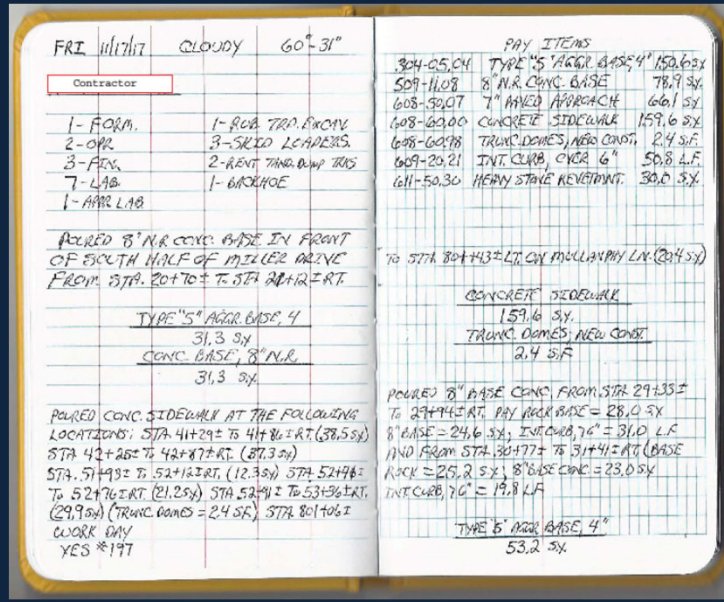 FRI 11/17/17 CLOUDY 60°-31°
Contractor
1-FORM. 1-RUB TRD. EXCAV.
2-OPR 3-SKID LOADERS.
3-FIN. 2-RENT TAND. DUMP TRKS
7-LAB. 1-BACKHOE
1-APPR LAB
POURED 8" N.R. CONC. BASE IN FRONT
OF SOUTH HALF OF MILLER DRIVE
FROM STA. 20+70± TO STA 21+12± RT.
TYPE "5" AGGR. BASE, 4
31.3 S.Y.
CONC. BASE, 8" N.R.
31.3 S.Y.
POURED CONC. SIDEWALK AT THE FOLLOWING
LOCATIONS: STA 41+29± TO 41+86± RT. (38.5 SY)
STA 42+25± TO 42+87± RT. (37.3 SY)
STA. 51+93± TO 52+12± RT. (12.3 SY) STA 52+46±
TO 52+76± RT. (21.2 SY) STA 52+91± TO 53+36± RT.
(29.9 SY) (TRUNC. DOMES = 2.4 SF.) STA 801+06±
WORK DAY
YES #197
PAY ITEMS
304-05.04 TYPE "5" AGGR. BASE, 4" 150.6 SY
509-11.08 8" N.R. CONC. BASE 78.9 S.Y.
608-50.07 7" PAVED APPROACH 66.1 SY
608-60.00 CONCRETE SIDEWALK 159.6 SY
608-60.98 TRUNC. DOMES, NEW CONST. 2.4 S.F.
609-20.21 INT. CURB, OVER 6" 50.8 L.F.
611-50.30 HEAVY STONE REVETMNT. 30.0 S.Y.
TO STA 801+43± LT. ON MULLANPHY LN. (20.4 SY)
CONCRETE SIDEWALK
159.6 S.Y.
TRUNC. DOMES, NEW CONST.
2.4 S.F.
POURED 8" BASE CONC. FROM STA 29+35±
TO 29+94± RT. PAY ROCK BASE = 28.0 SY
8" BASE = 24.6 SY, INT. CURB, >6" = 31.0 LF
AND FROM STA 30+77± TO 31+41± RT (BASE
ROCK = 25.2 SY, 8" BASE CONC = 23.0 SY
INT. CURB, >6" = 19.8 LF
TYPE "5" AGGR BASE, 4"
53.2 S.Y.